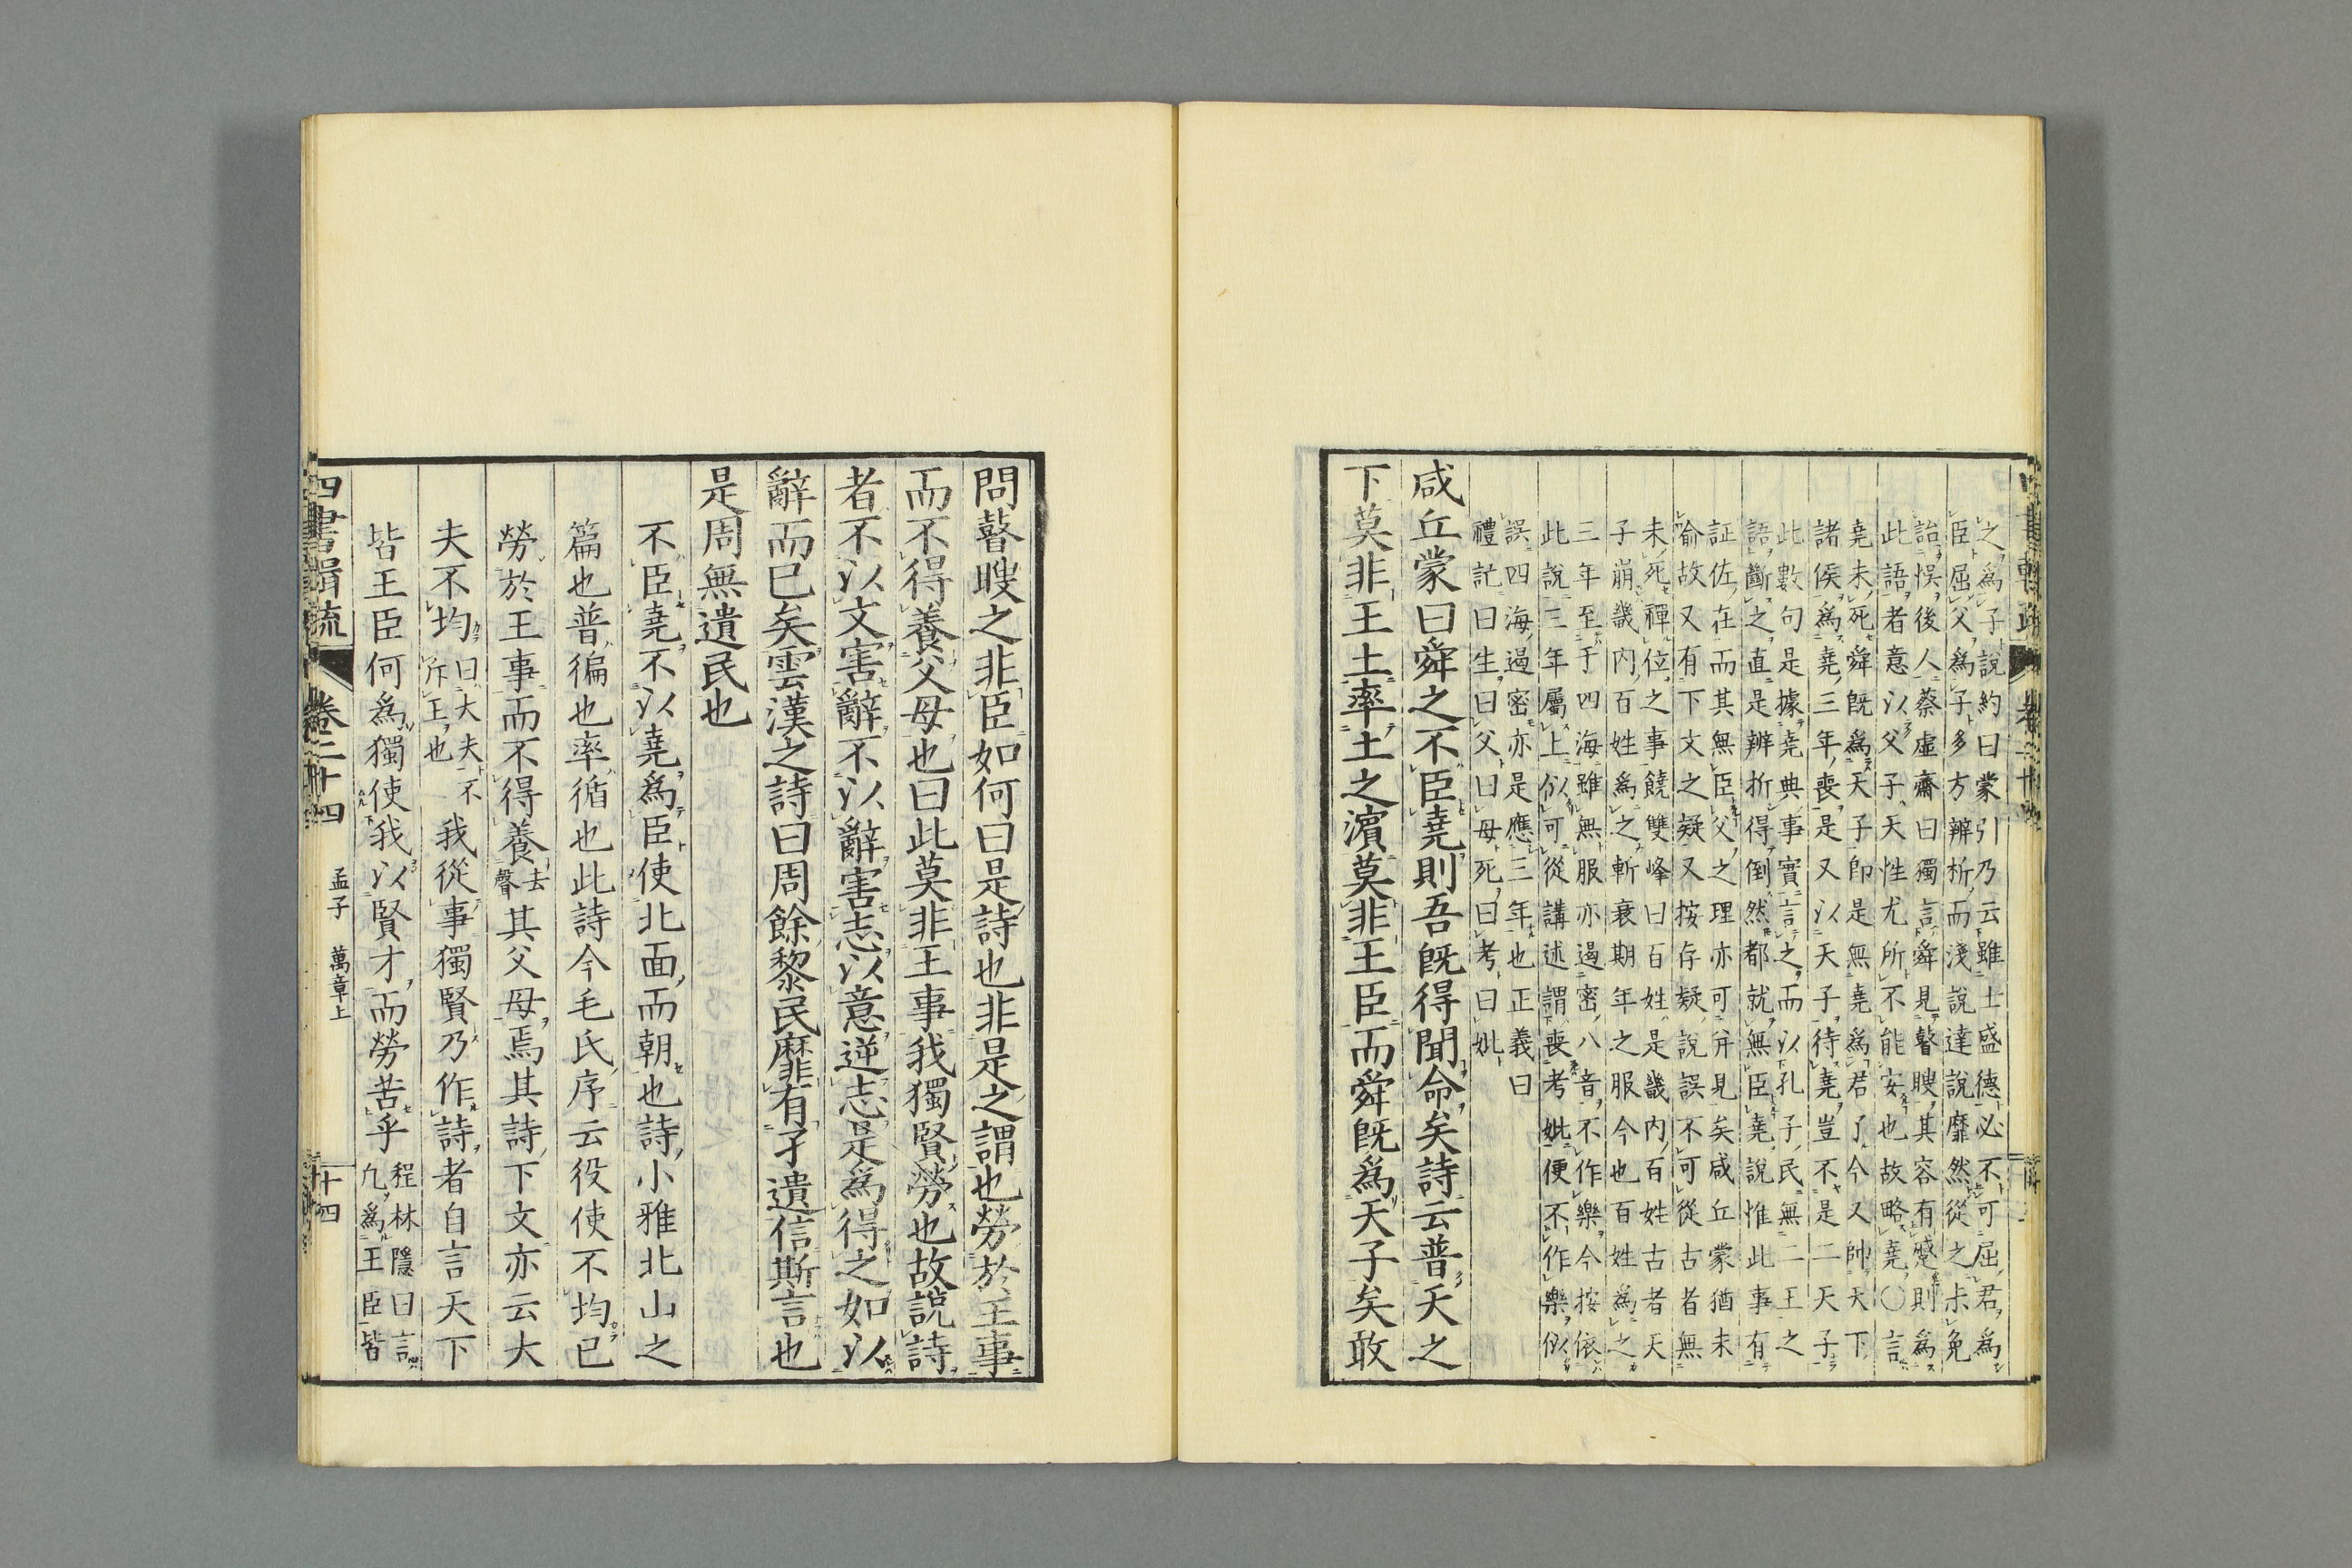 之爲子說約曰蒙引乃云雖士盛德必不可屈君爲
臣屈父爲子多方辨析而淺說達說靡然從之未免
詒悞後人蔡虛齋曰獨言舜見瞽瞍其容有蹙則爲
此語者意以父子天性尤所不能安也故略堯〇言
堯未死舜既爲天子卽是無堯爲君了今又帥天下
諸侯爲堯三年喪是又以天子待堯豈不是二天子
此數句是據堯典事實言之而以孔子民無二王之
語斷之直是辨折得倒然都就無臣堯說惟此事有
証佐在而其無臣父之理亦可并見矣咸丘蒙猶未
喻故又有下文之疑又按存疑說誤不可從古者無
未死禪位之事饒雙峰曰百姓是畿內百姓古者天
子崩畿內百姓爲之斬衰期年之服今也百姓爲之
三年至于四海雖無服亦遏密八音不作樂今按依
此說三年屬上似可從講述謂喪考妣便不作樂似
誤四海遏密亦是應三年也正義曰
禮記曰生曰父曰母死曰考曰妣
咸丘蒙曰舜之不臣堯則吾既得聞命矣詩云普天之
下莫非王土率土之濱莫非王臣而舜既爲天子矣敢
問瞽瞍之非臣如何曰是詩也非是之謂也勞於王事
而不得養父母也曰此莫非王事我獨賢勞也故說詩
者不以文害辭不以辭害志以意逆志是爲得之如以
辭而已矣雲漢之詩曰周餘黎民靡有孑遺信斯言也
是周無遺民也
不臣堯不以堯爲臣使北面而朝也詩小雅北山之
篇也普徧也率循也此詩今毛氏序云役使不均已
勞於王事而不得養去聲其父母焉其詩下文亦云大
夫不均曰大夫不斥王也我從事獨賢乃作詩者自言天下
皆王臣何爲獨使我以賢才而勞苦乎程林隱曰言凡爲王臣皆
四書輯疏 卷二十四 孟子 萬章上 十四